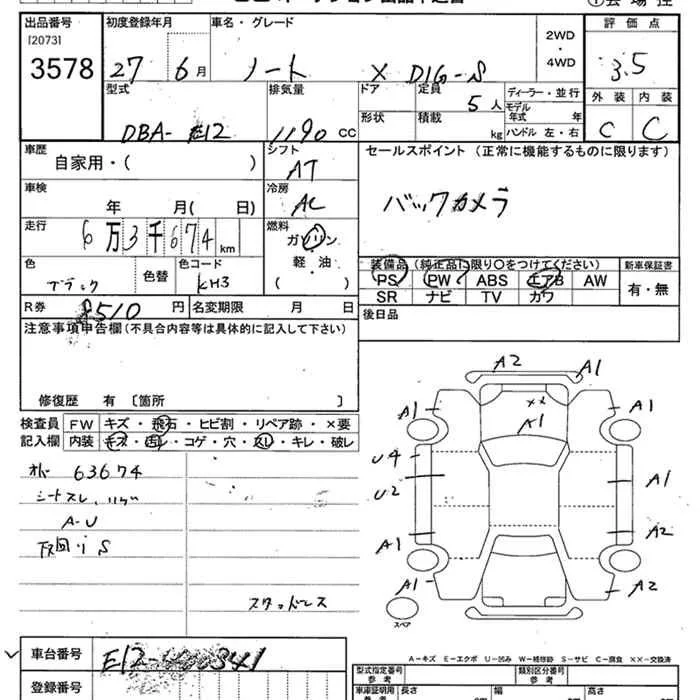 出品番号 初度登録年月 車名・グレード 2WD ・ 4WD 評価点
[2073]
3578 27 6月 ノート X DIG-S 3.5
型式 排気量 ドア 定員 5人 ディーラー・並行 外装 内装
DBA-E12 1190 CC 形状 積載 kg モデル年式 年 C C
ハンドル 左・右
車歴 シフト セールスポイント (正常に機能するものに限ります)
自家用・( ) AT
車検 冷房 バックカメラ
年 月( 日) AC
走行 燃料
6万3千674km ガソリン
軽・油
( )
色 色替 色コード 装備品 (純正品に限り〇をつけてください) 新車保証書
ブラック KH3 PS PW ABS エアB AW 有・無
SR ナビ TV カワ
R券 8510円 名変期限 月 日 後日品
注意事項申告欄(不具合内容等は具体的に記入して下さい)
修復歴 有 〔箇所 〕
検査員 FW キズ・飛石・ヒビ割・リペア跡・×要
記入欄 内装 キズ・汚レ・コゲ・穴・スレ・キレ・破レ
63674
シートスレ、
A-U
下回りS
スタッドレス
A2 A1
A1 A1 A1
××
U4
U2 A1
A1 A2
A1 A2
スペア
A-キズ E-エクボ U-凹み W-補修跡 S-サビ C-腐食 ××-交換済
車台番号
登録番号
型式指定番号 参考 類別区分番号 参考
長さ 幅 高さ